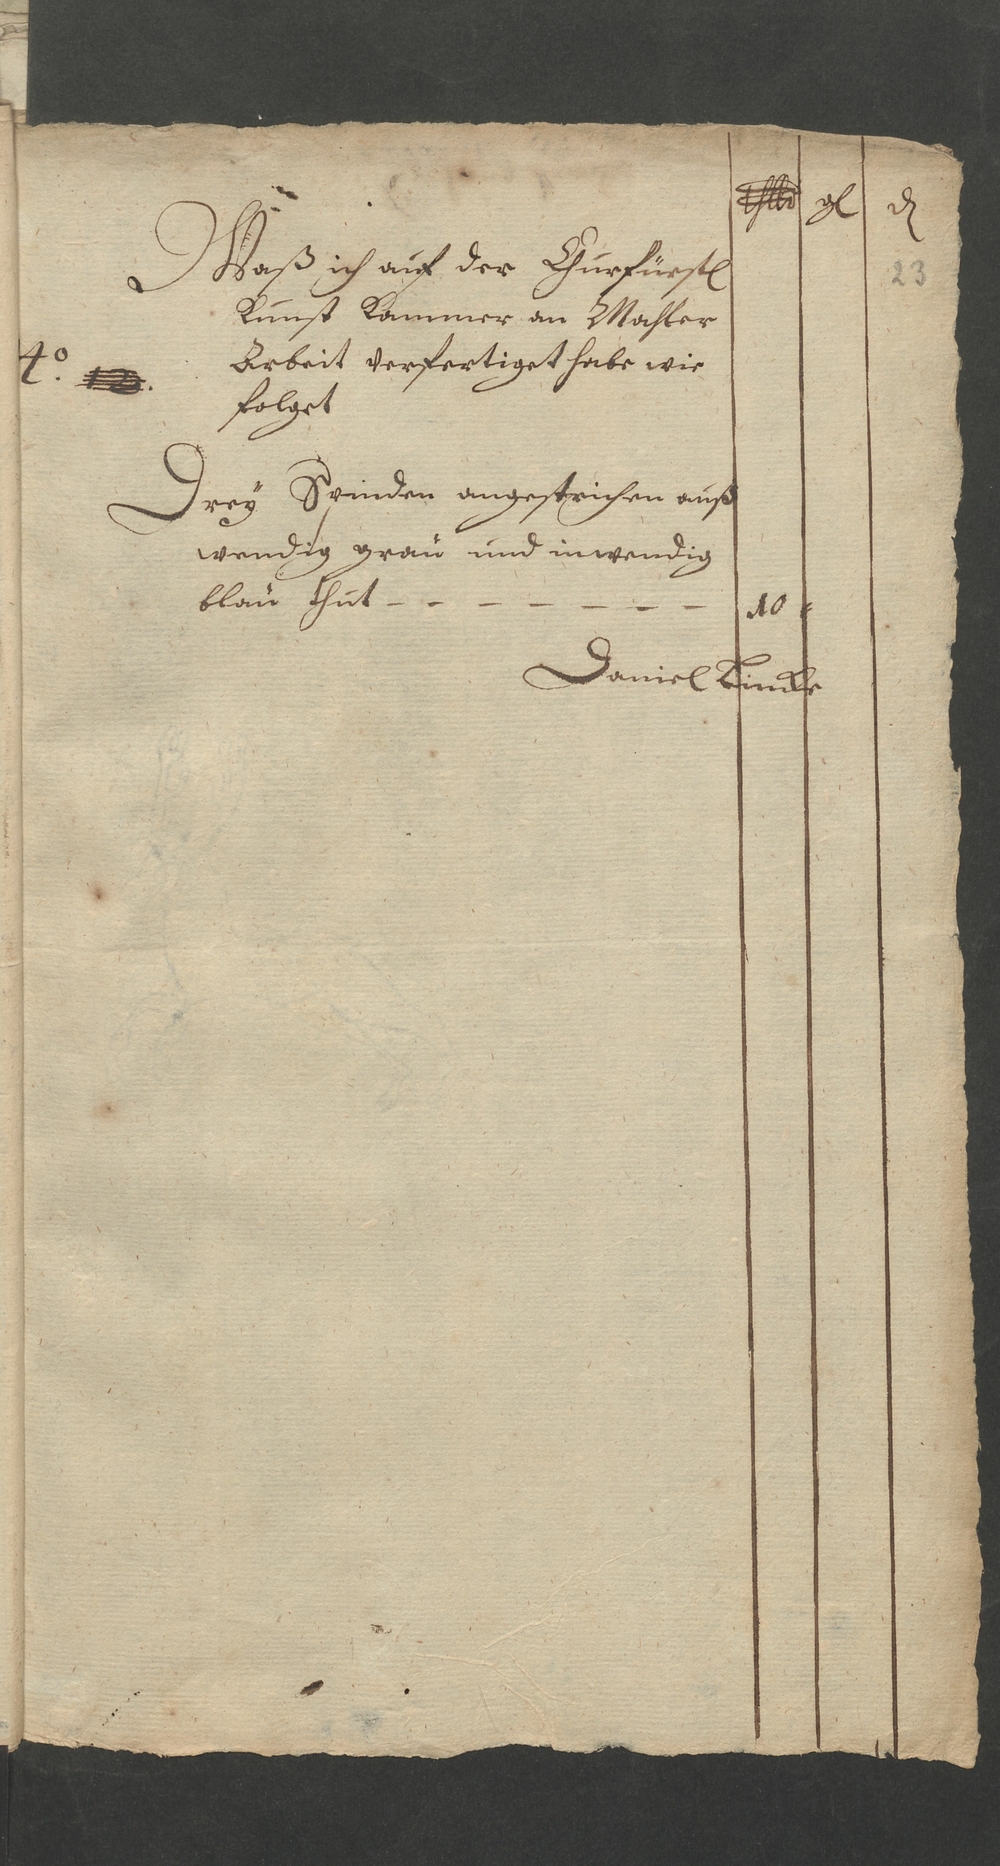 gl ₰
23
Waß ich auf der Churfürstl
Kunst Kammer an Mahler
4º. Arbeit verfertiget habe wie
folget
Dreÿ Spinden angestrichen auß
wendig grau und inwendig
blau thut - - - - - - - 10
Daniel